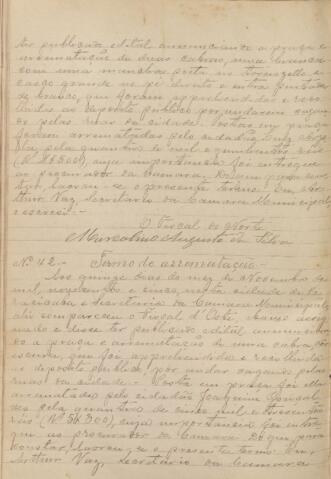 ter publicado edital annunciando a praça e
arrematação de duas cabras, uma branca
com uma manchas preta no tornozello e
casco grande no pé direito e outra pintada
de branco, que foram apprehendidas e reco-
lhidas ao deposito publico por andarem vagan-
do pelas ruas da cidade. Posta em praça
foram arrematadas pelo cidadão Luiz
pela quantia de mil e quinhentos reis
(R 1$500), cuja importancia foi entregue
ao procurador da Camara. Do que para cons-
tar, lavrou-se o presente termo. Eu, Ar-
thur Vaz, secretario da Camara Municipal,
escrevi.
O Fiscal do Norte
Marcolino Augusto da Silva
Nº 42 - Termo de arrematação -
Aos quinze dias do mez de Novembro de
mil, novecentos e cinco, nesta cidade de Pi-
racicaba e Secretaria da Camara Municipal,
ahi compareceu o Fiscal d'Oeste abaixo assig-
nado e disse ter publicado edital annuncian-
do a praça e arrematação de uma cabra
escura, que foi apprehendida e recolhida
ao deposito publico por andar vagando pelas
ruas da cidade. - Posta em praça foi
arrematada pelo cidadão Joaquim Gonsal-
ves pela quantia de cinco mil e trezentos
reis (R 5$300), cuja importancia foi entre-
gue ao procurador da Camara. Do que, para
constar, lavrou-se o presente termo. Eu,
Arthur Vaz, secretario da Camara